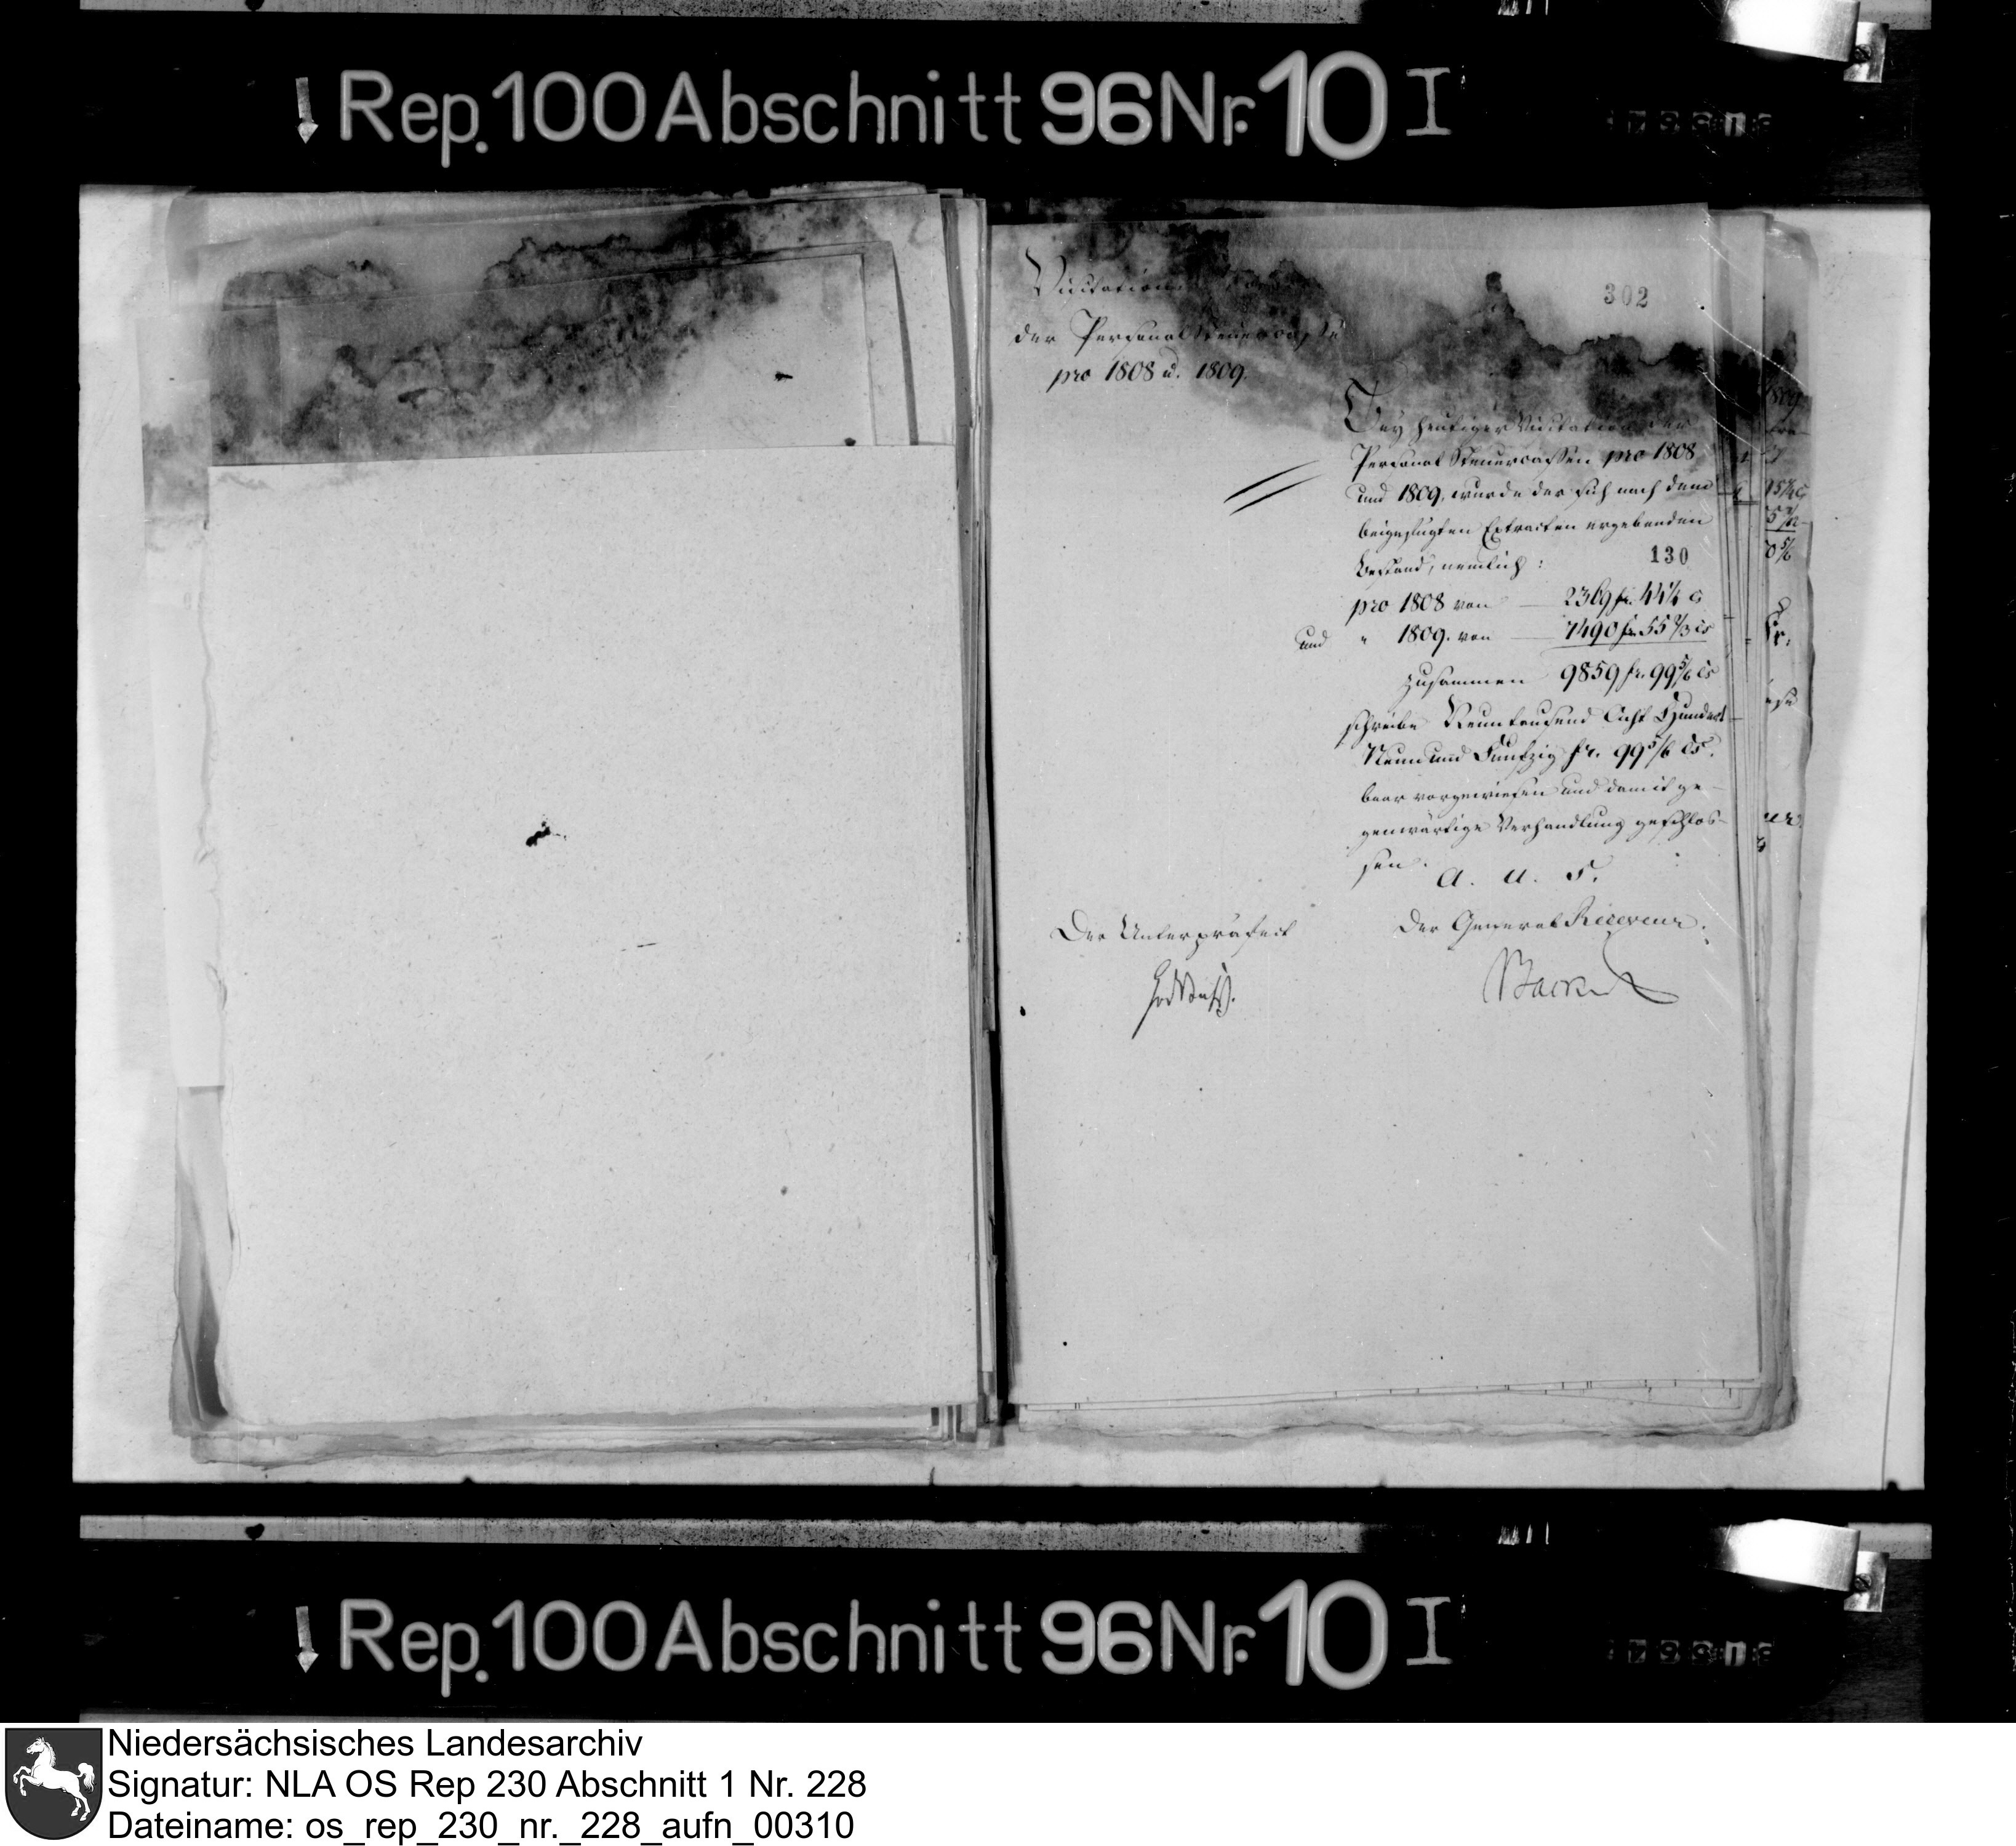 Rep. 100 Abschnitt 96 Nr. 10 I
302
Visitation
der Personal Steuercasse
pro 1808 u. 1809.
Bey heutiger Visitation der
Personal Steuercassen pro 1808
und 1809, wurde der sich nach dem
beigefügten Extracten ergebenden
Bestand, nemlich:
130
pro 1808 von 2369 fr. 44 1/6 cs
und " 1809. von 7490 fr. 55 2/3 cs
zusammen 9859 fr. 99 5/6 cs
schreibe Neuntausend Acht Hundert
Neun und Funfzig fr. 99 5/6 cs.
baar vorgewiesen und damit ge-
genwärtige Verhandlung geschlos-
sen.
A. U. S.
Der Unterpräfect
Der General Receveur.
Rep. 100 Abschnitt 96 Nr. 10 I
Niedersächsisches Landesarchiv
Signatur: NLA OS Rep 230 Abschnitt 1 Nr. 228
Dateiname: os_rep_230_nr._228_aufn_00310